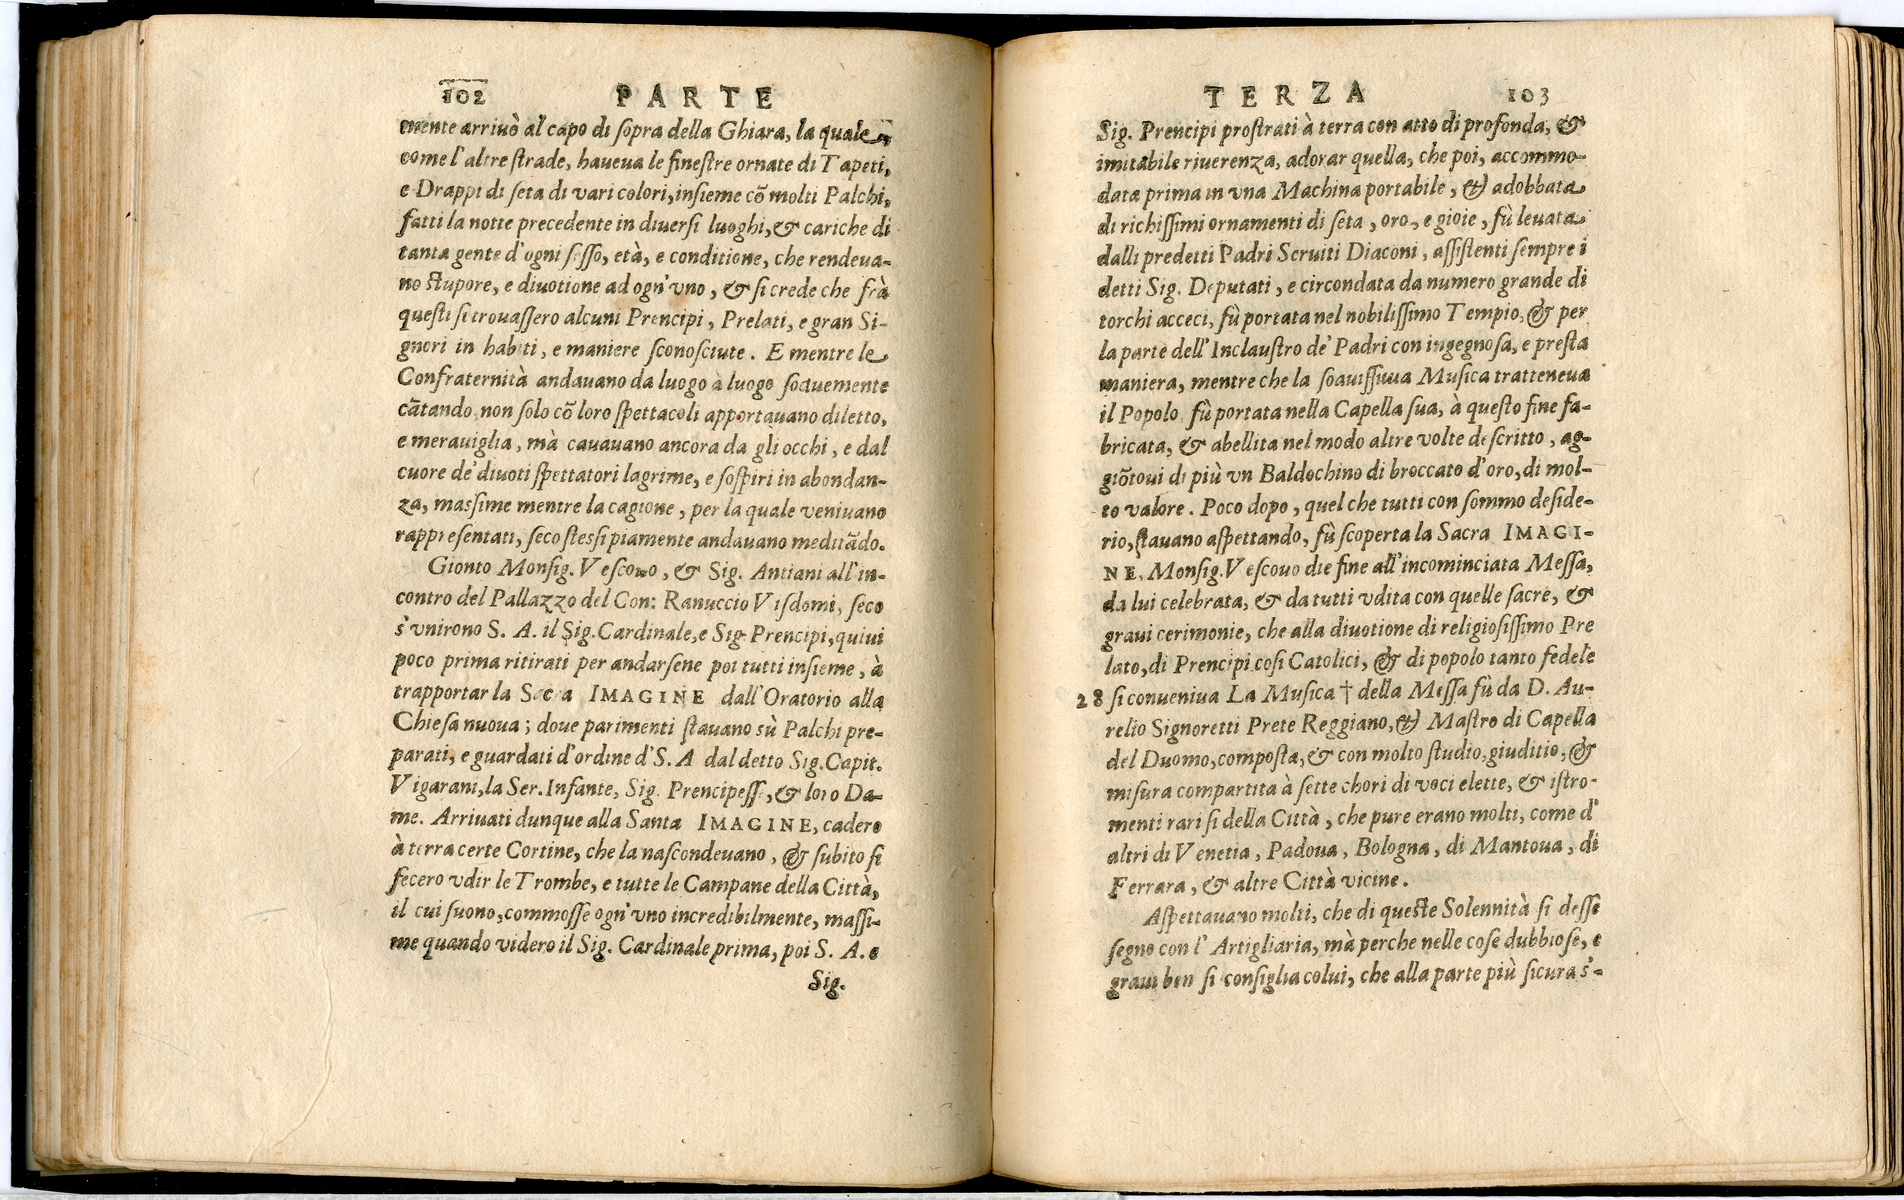 102 PARTE
mente arriuò al capo di ſopra della Ghiara, la quale,
come l'altre ſtrade, haueua le fineſtre ornate di Tapeti,
e Drappi di ſeta di vari colori, inſieme cõ molti Palchi,
fatti la notte precedente in diuerſi luoghi, & cariche di
tanta gente d'ogni ſeſſo, età, e conditione, che rendeua-
no ſtupore, e diuotione ad ogn'vno, & ſi crede che frà
queſti ſi trouaſſero alcuni Prencipi, Prelati, e gran Si-
gnori in habiti, e maniere ſconoſciute. E mentre le
Confraternità andauano da luogo à luogo ſoauemente
cãtando non ſolo cõ loro ſpettacoli apportauano diletto,
e merauiglia, mà cauauano ancora da gli occhi, e dal
cuore de' diuoti ſpettatori lagrime, e ſoſpiri in abondan-
za, maſsime mentre la cagione, per la quale veniuano
rappreſentati, ſeco ſteſſi piamente andauano meditãdo.
Gionto Monſig. Veſcouo, & Sig. Antiani all'in-
contro del Pallazzo del Con: Ranuccio Viſdomi, ſeco
s'vnirono S. A. il Sig. Cardinale, e Sig. Prencipi, quiui
poco prima ritirati per andarſene poi tutti inſieme, à
trapportar la Sacra IMAGINE dall'Oratorio alla
Chieſa nuoua; doue parimenti ſtauano sù Palchi pre-
parati, e guardati d'ordine d'S. A dal detto Sig. Capit.
Vigarani, la Ser. Infante, Sig. Prencipeſſe, & loro Da-
me. Arriuati dunque alla Santa IMAGINE, cadero
à terra certe Cortine, che la naſcondeuano, & ſubito ſi
fecero vdir le Trombe, e tutte le Campane della Città,
il cui ſuono, commoſſe ogn'vno incredibilmente, maſſi-
me quando videro il Sig. Cardinale prima, poi S. A. e
Sig.
TERZA 103
Sig. Prencipi proſtrati à terra con atto di profonda, &
imitabile riuerenza, adorar quella, che poi, accommo-
data prima in vna Machina portabile, & adobbata
di richiſſimi ornamenti di ſeta, oro, e gioie, fù leuata
dalli predetti Padri Seruiti Diaconi, aſſiſtenti ſempre i
detti Sig. Deputati, e circondata da numero grande di
torchi acceci, fù portata nel nobiliſſimo Tempio, & per
la parte dell'Inclauſtro de' Padri con ingegnoſa, e preſta
maniera, mentre che la ſoauiſſiua Muſica tratteneua
il Popolo fù portata nella Capella ſua, à queſto fine fa-
bricata, & abellita nel modo altre volte deſcritto, ag-
giõtoui di più vn Baldochino di broccato d'oro, di mol-
to valore. Poco dopo, quel che tutti con ſommo deſide-
rio, ſtauano aſpettando, fù ſcoperta la Sacra IMAGI-
NE. Monſig. Veſcouo die fine all'incominciata Meſſa,
da lui celebrata, & da tutti vdita con quelle ſacre, &
graui cerimonie, che alla diuotione di religioſiſſimo Pre
lato, di Prencipi coſi Catolici, & di popolo tanto fedele
28 ſi conueniua La Muſica † della Meſſa fù da D. Au-
relio Signoretti Prete Reggiano, & Maſtro di Capella
del Duomo, compoſta, & con molto ſtudio, giuditio, &
miſura compartita à ſette chori di voci elette, & iſtro-
menti rari ſi della Città, che pure erano molti, come d'
altri di Venetia, Padoua, Bologna, di Mantoua, di
Ferrara, & altre Città vicine.
Aſpettauano molti, che di queſte Solennità ſi deſſe
ſegno con l'Artigliaria, mà perche nelle coſe dubbioſe, e
graui ben ſi conſiglia colui, che alla parte più ſicura s'-